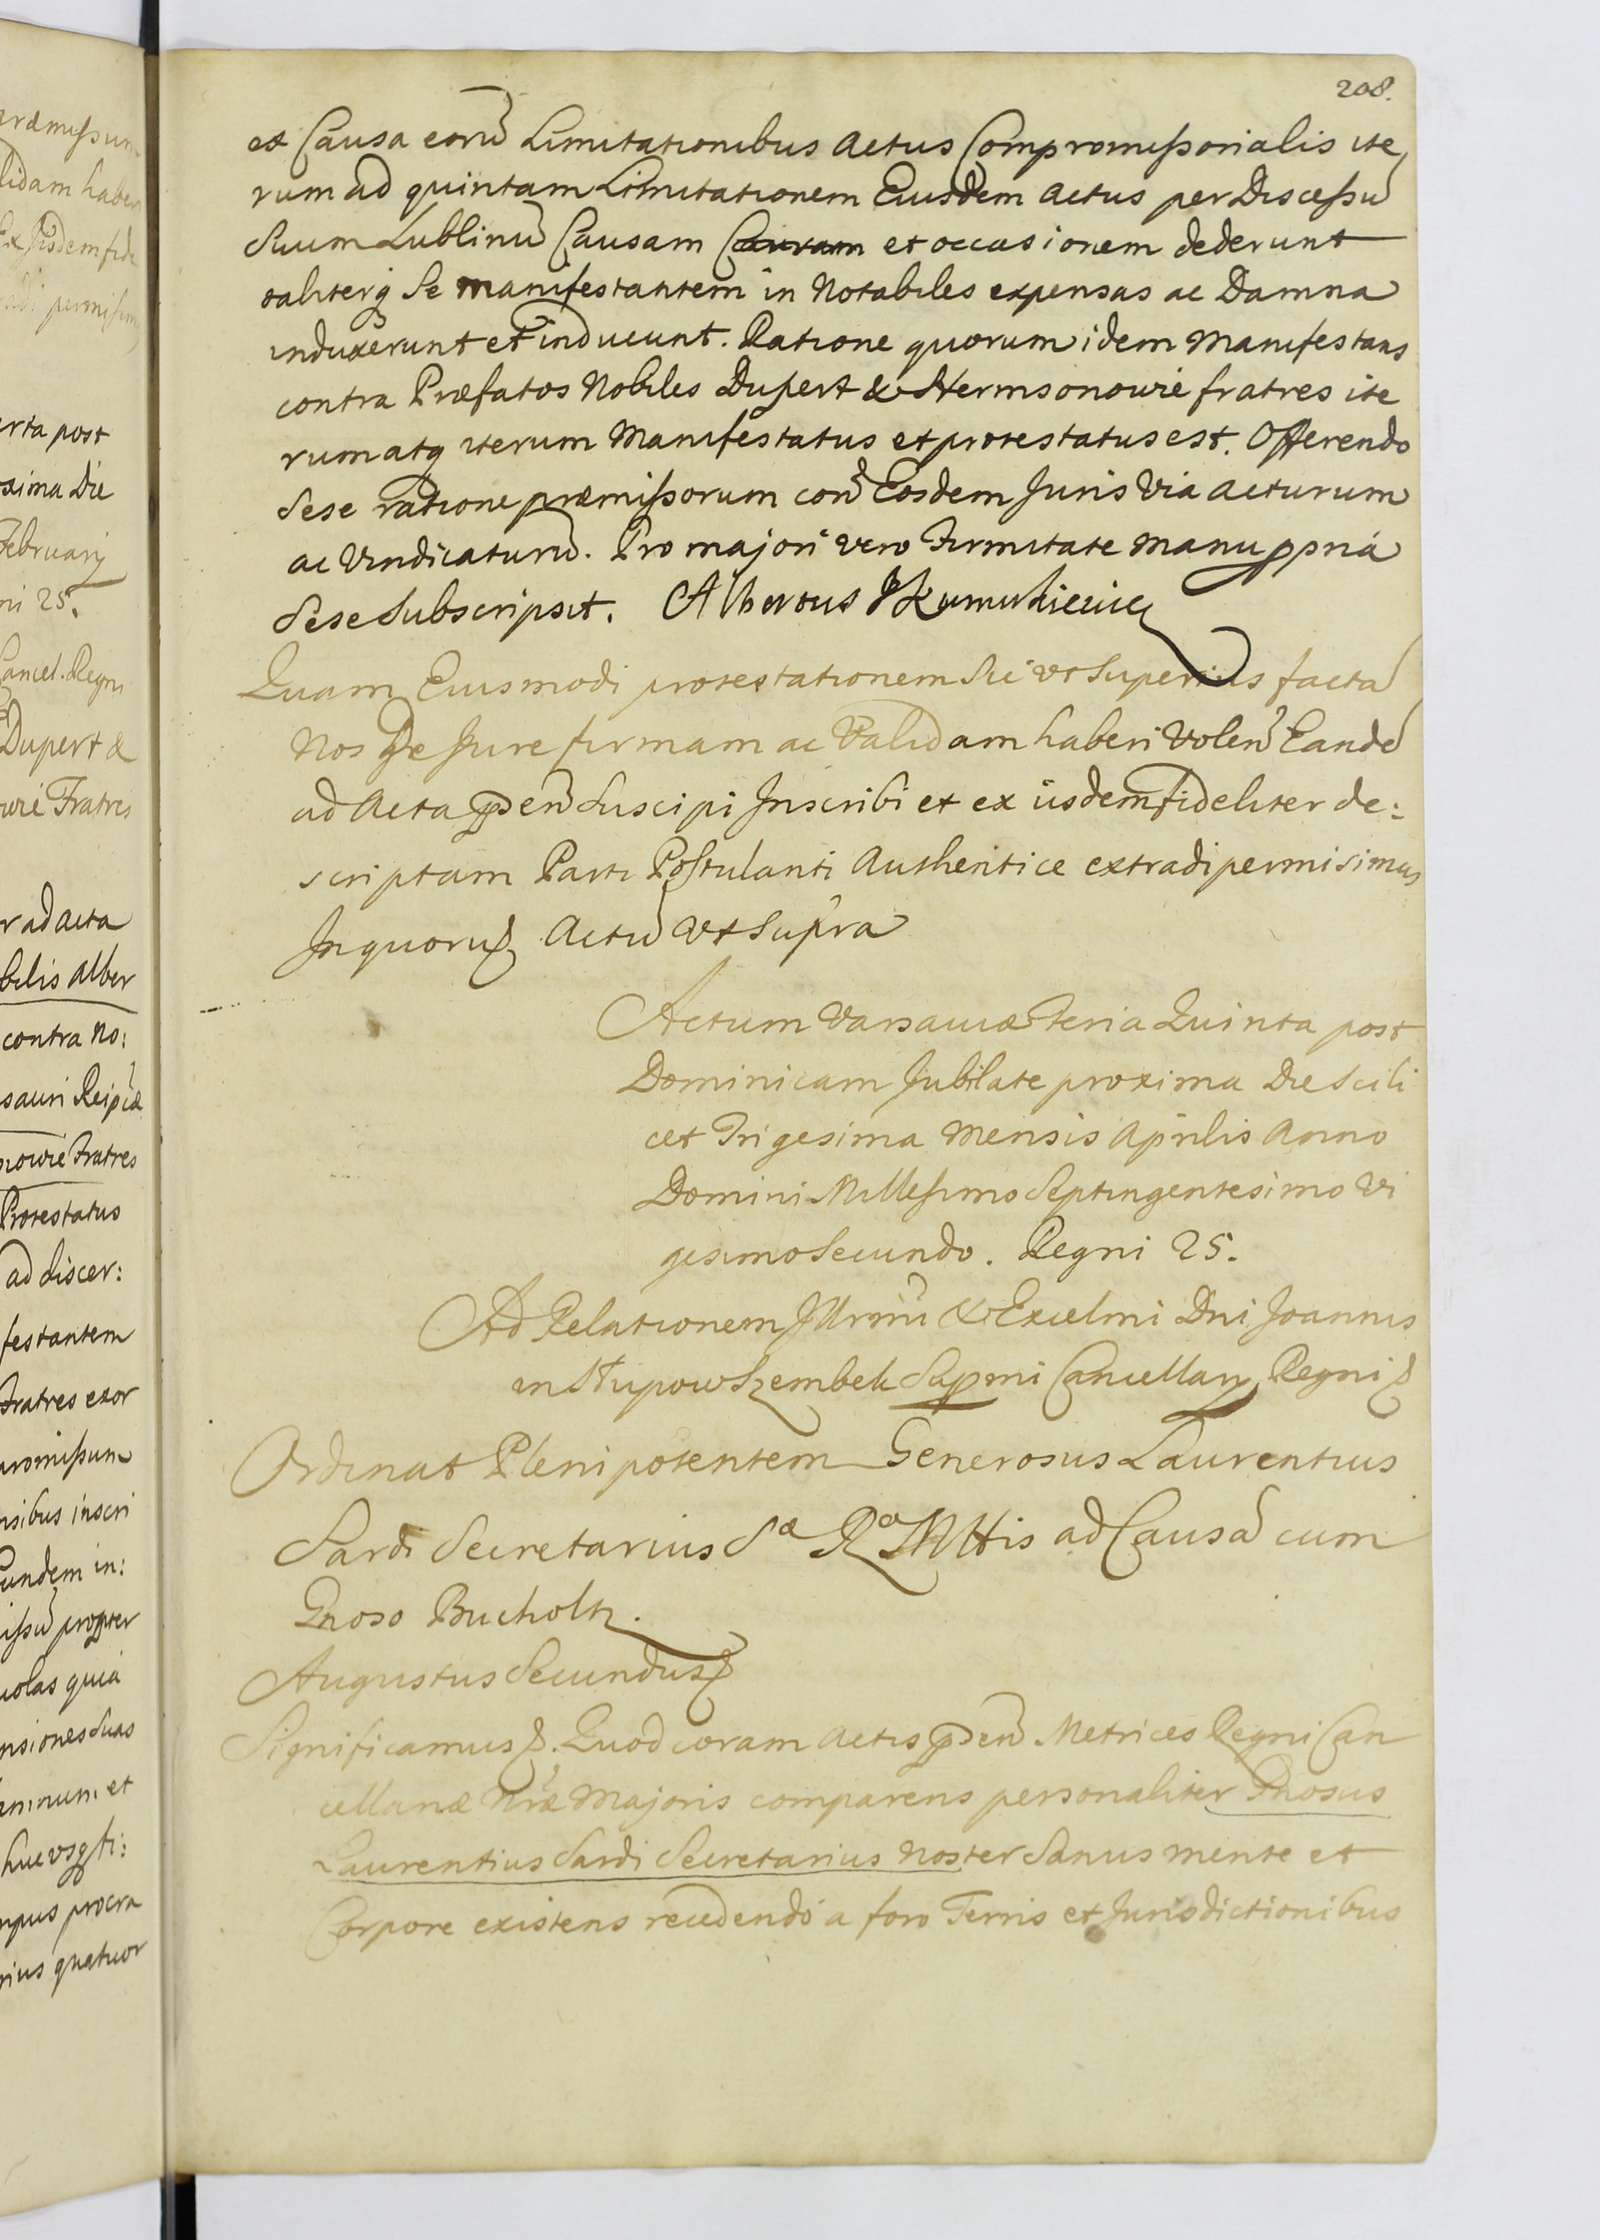 ræmissum
lidam haberi
Ex Iisdem fide
permisim
erta post
xima Die
Februarij
ni 25.
Cancel. Regni
Dupert &
wie Fratres
r ad acta
bilis Alber
contra No:
sauri Reipcæ
nowie Fratres
Protestatus
ad discer:
festantem
Fratres exor
promissum
nsibus inscri
Eundem in:
issũ propter
uolas quia
nsiones suas
amnum et
huc usq ti:
mpus procra
rius quatuor
208.
ex Causa eorũ Limitationibus Actus Compromissorialis ite
rum ad quintam Limitationem Eiusdem Actus per Discessũ
Suum Lublinũ Causam et occasionem dederunt
taliterq Se manifestantem in Notabiles expensas ac Damna
induxerunt et inducunt. Ratione quorum idem Manifestans
contra Præfatos Nobiles Dupert & Hermsonowie fratres ite
rum atq iterum Manifestatus et protestatus est. Offerendo
Sese ratione præmissorum con̄ Eosdem Juris Via Acturum
ac Vindicaturũ. Pro majori vero Firmitate manu ppria
Sese Subscripsit. Albertus
Quam Eiusmodi protestationem Sic ut Superius factã
Nos de Jure firmam ac Validam haberi Volen̄ Eandẽ
ad Acta p̄sen̄ Suscipi Inscribi et ex iisdem fideliter de:
scriptam Parti Postulanti Authentice extradi permisimus
In quorũ Actũ Ut Supra
Actum Varsaviæ Feria Quinta post
Dominicam Jubilate proxima Die Scili
cet Trigesima Mensis Aprilis Anno
Domini Millesimo Septingentesimo Vi
gesimo Secundo. Regni 25.
Ad Relationem Illrmi & Excelmi Dni Joannis
in Słupow Szembek Supmi Cancellarij Regni
Ordinat Plenipotentem Generosus Laurentius
Sardi Secretarius Sæ Ræ Mttis ad Causã cum
Gnoso Bucholtz.
Augustus Secundus
Significamus Quod coram Actis p̄sen̄ Metrices Regni Can
cellariæ Nræ Majoris comparens personaliter Gnosus
Laurentius Sardi Secretarius Noster Sanus mente et
Corpore existens recedendo a foro Terris et Jurisdictionibus